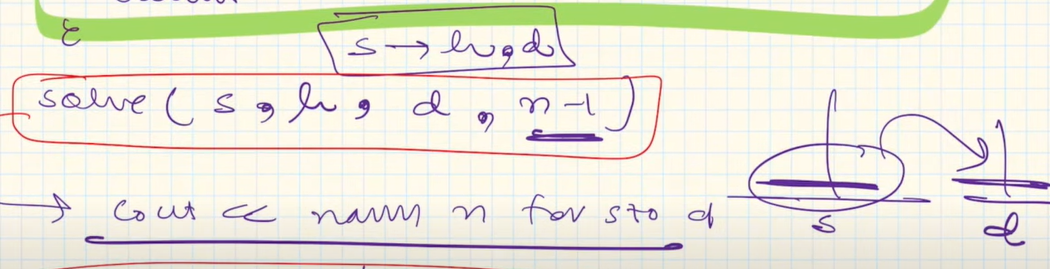 s → h, d
solve ( s , h , d , n-1 )
→ cout << n for s to d
s
d